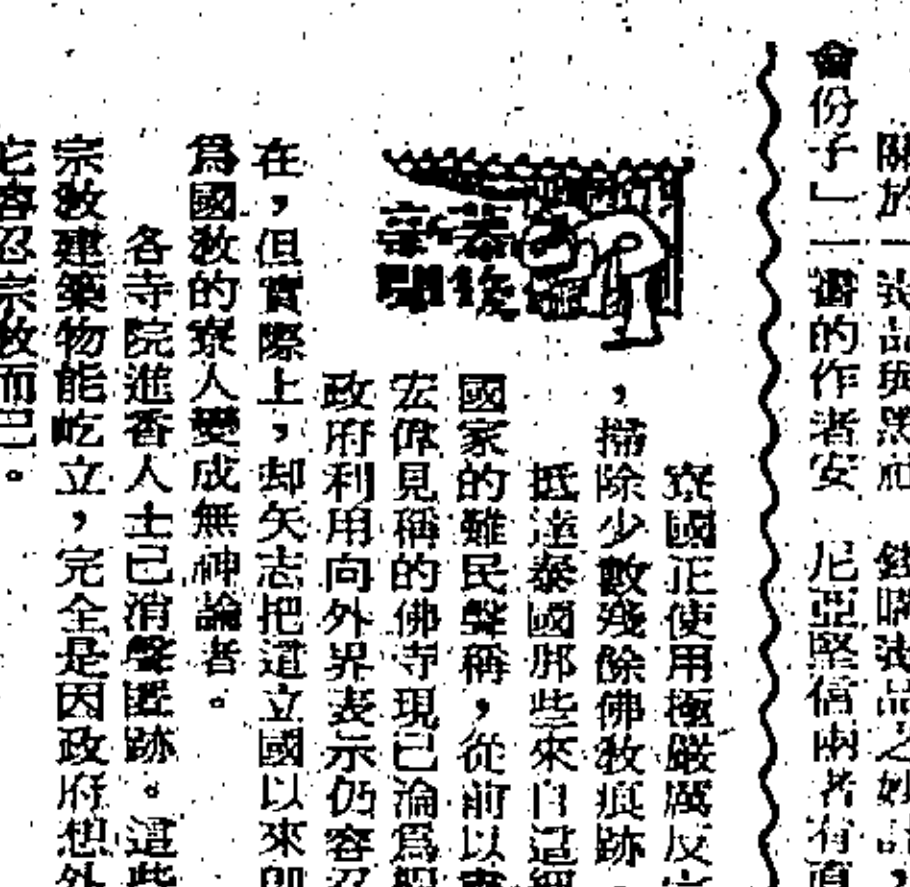 關於
會份子」一書的作者安　尼亞堅信兩者有直
幕後
新聞
寮國正使用極嚴厲反
，掃除少數殘餘佛教痕跡
抵達泰國那些來自這
國家的難民聲稱，從前以
宏偉見稱的佛寺現已淪爲
政府利用向外界表示仍容忍
在，但實際上，却矢志把這立國以來卽
爲國教的寮人變成無神論者。
各寺院進香人士已消聲匿跡。這些
宗教建築物能屹立，完全是因政府想外
容忍宗教而已。